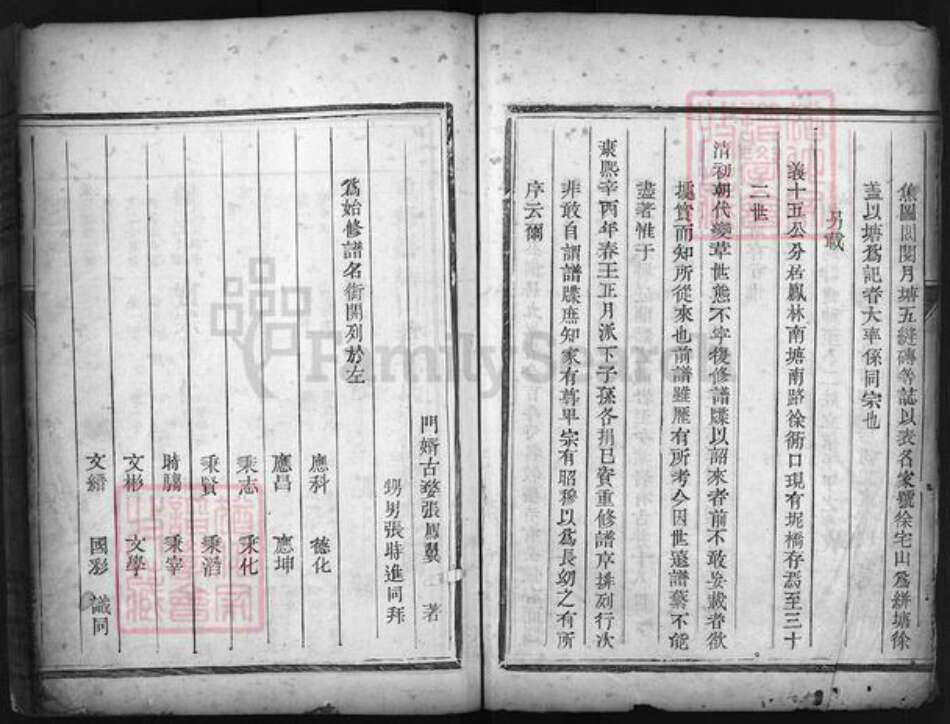 焦園閣閱月塘五縫磚等誌以表名家號徐宅山爲絣塘徐
蓋以塘爲記者大率係同宗也
另載
義十五公分居鳳林南塘南路徐衕口現有坭橋存焉至三十
二世
清初朝代變革世態不寧復修譜牒以詔來者前不敢妄載者欲
塡實而知所從來也前譜雖歷有所考今因世遠譜藁不能
盡著惟于
康熙辛丙年春王正月派下子孫各捐己資重修譜序排列行次
非敢自謂譜牒庶知家有尊卑宗有昭穆以爲長幼之有所
序云爾
門婿古婺張鳳翼 著
甥男張時進同拜
爲始修譜名銜開列於左
應科 德化
應昌 應坤
秉志 秉化
秉賢 秉滔
時鵬 秉宰
文彬 文學
文繡 國彩 識同
FamilySearch